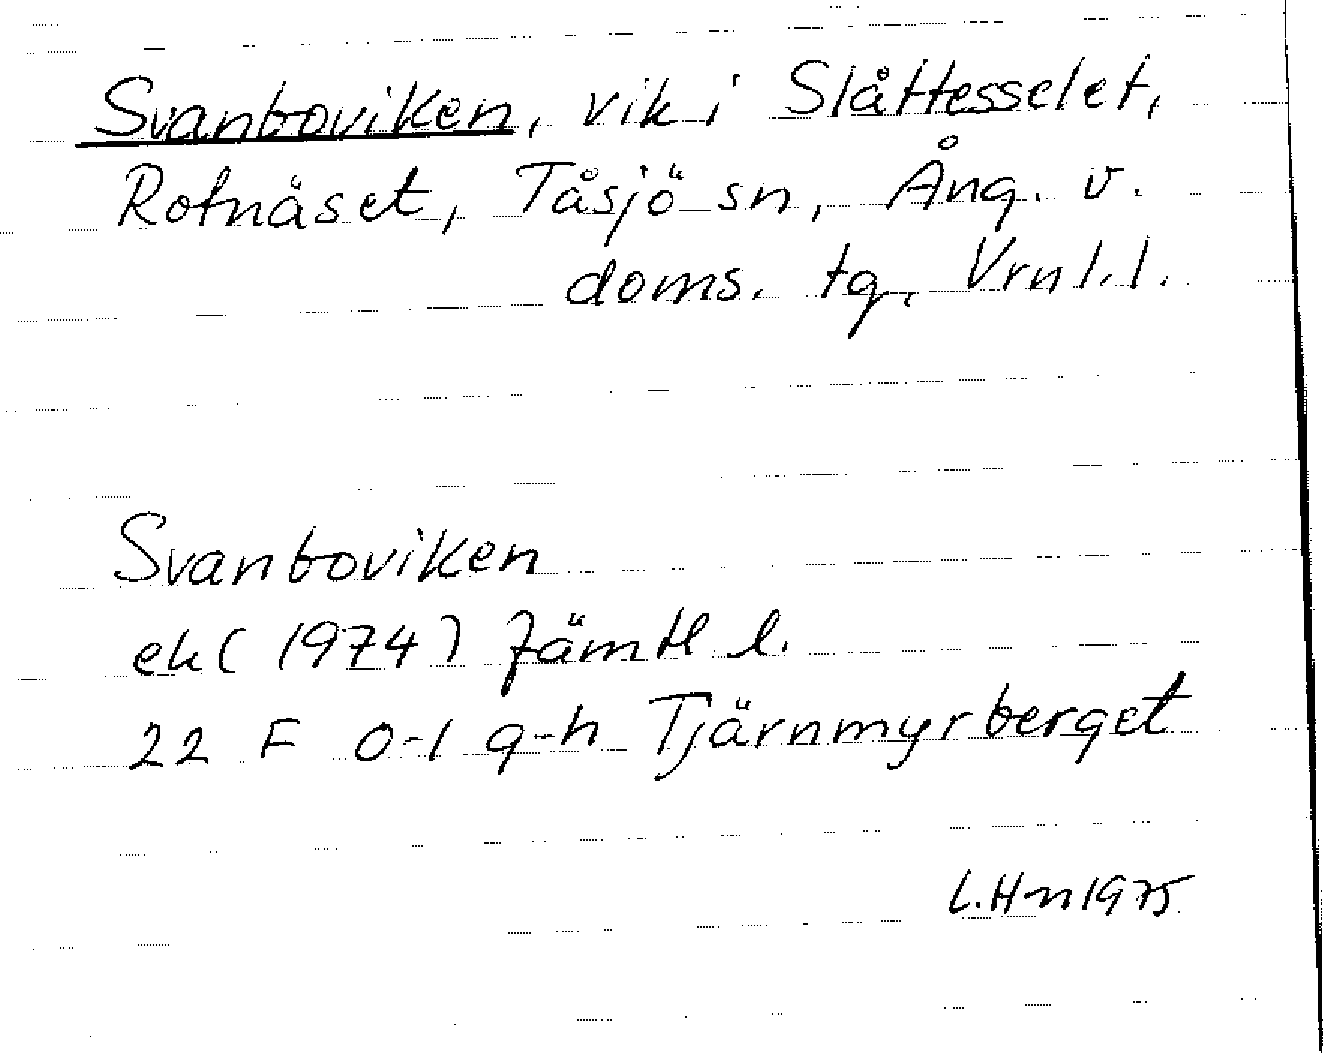 Svanboviken, vik i Slåttesselet,
Rotnäset, Tåsjö sn, Ång. v.
doms. tg, Vrnl. l.
Svanboviken
ek (1974) Jämtl l.
22 F 0-1 g-h Tjärnmyrberget
L. Hn 1975